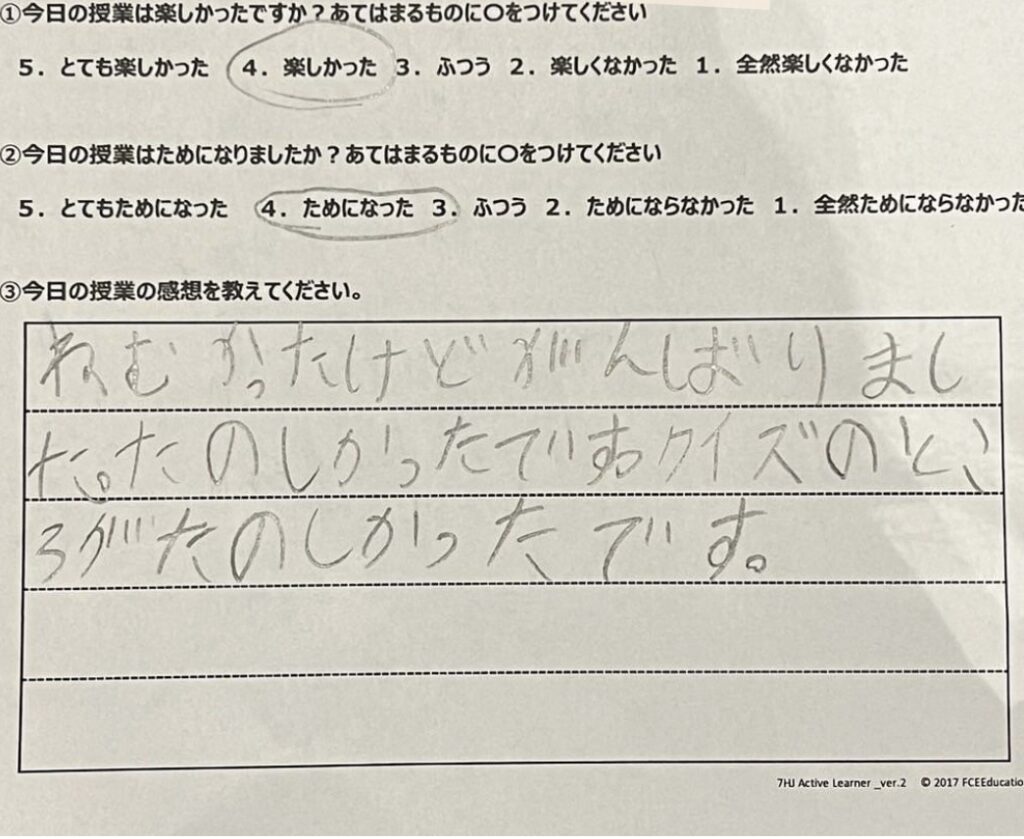 ①今日の授業は楽しかったですか？あてはまるものに〇をつけてください
5．とても楽しかった 4．楽しかった 3．ふつう 2．楽しくなかった 1．全然楽しくなかった
②今日の授業はためになりましたか？あてはまるものに〇をつけてください
5．とてもためになった 4．ためになった 3．ふつう 2．ためにならなかった 1．全然ためにならなかった
③今日の授業の感想を教えてください。
ねむかったけどがんばりまし
た。たのしかったです。クイズのとこ
ろがたのしかったです。
7HJ Active Learner _ver.2 © 2017 FCEEducatio